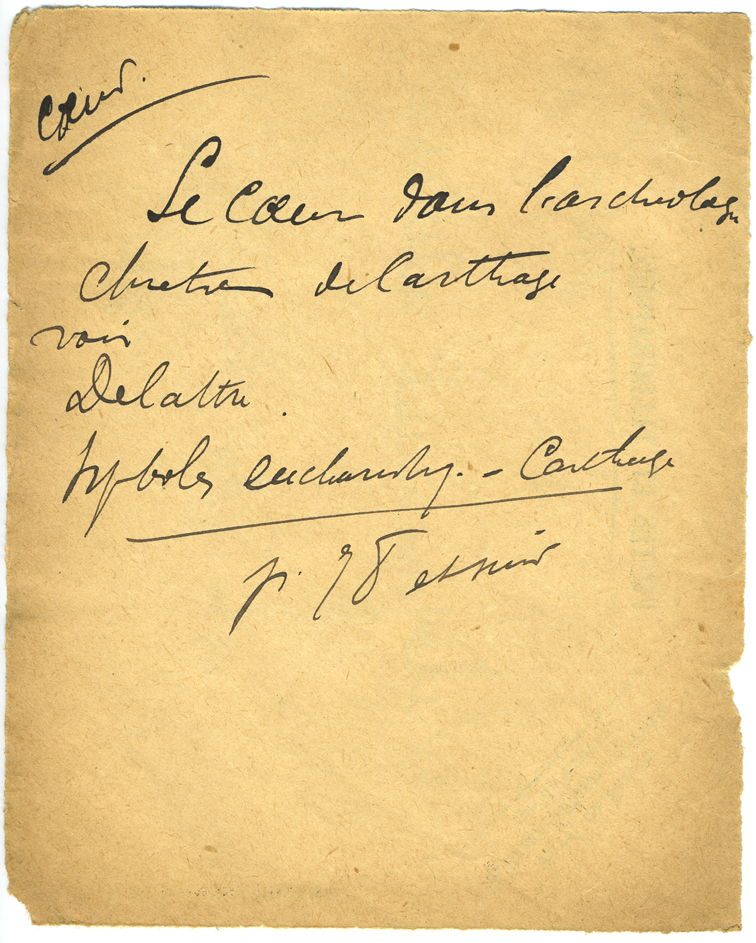 Cœur.
Le Cœur dans l'archeologie
chretienne de Carthage
voir
Delattre.
Symboles eucharistiq. - Carthage
p. et suiv